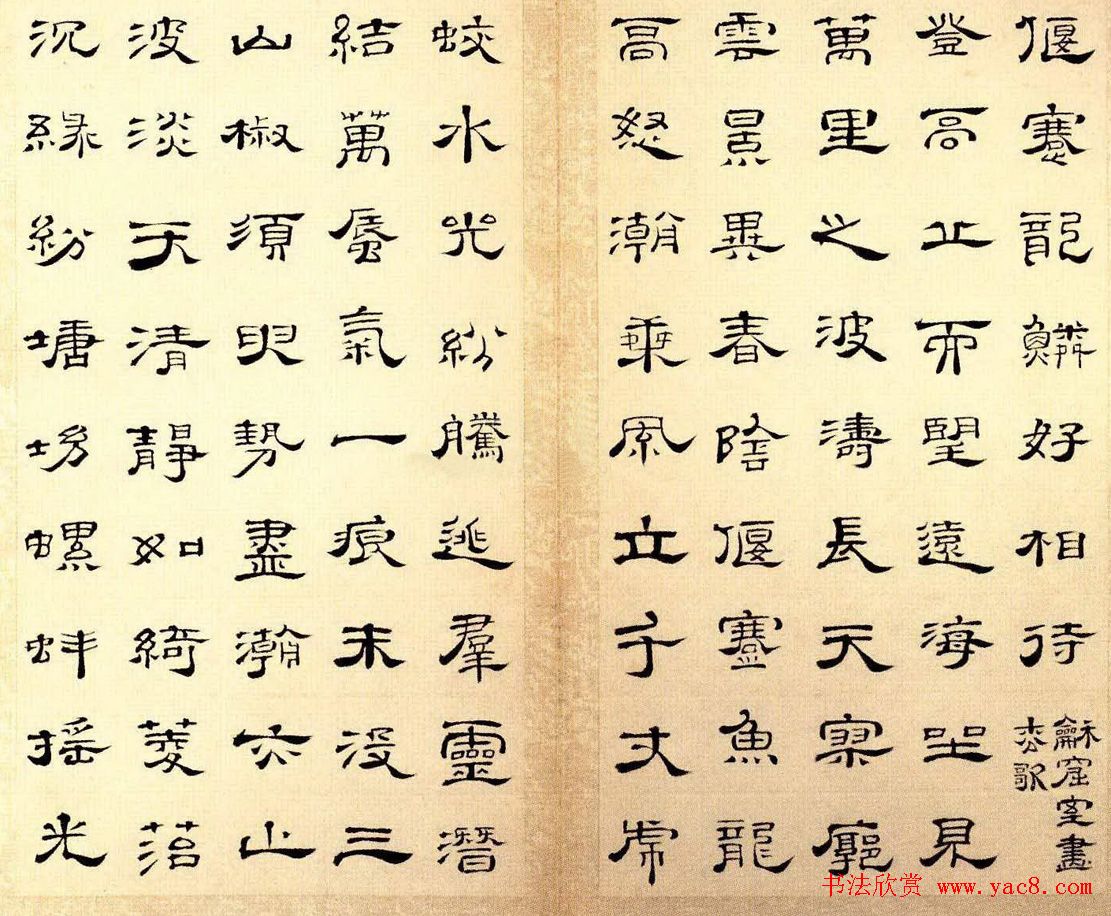 偃蹇龍鱗好相待
龢窟室畫
枩歌
登高丘而望遠海坐見
萬里之波濤長天寥廓
雲景異春陰偃蹇魚龍
高怒潮乘風立千丈虎
蛟水光紛騰逃羣靈潛
結萬蜃氣一痕未沒三
山椒須臾勢盡瀚亦止
波淡天清靜如綺菱苕
沉緑紛塘坳螺蚌搖光
书法欣赏 www.yac8.com